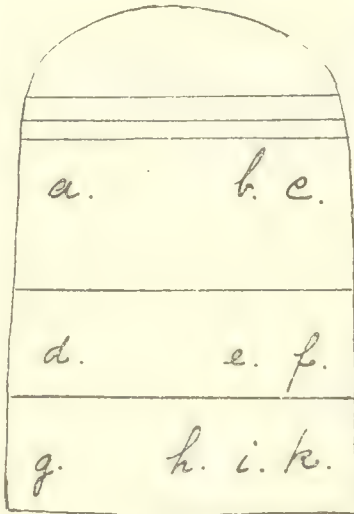 a. b. c.
d. e. f.
g. h. i. k.